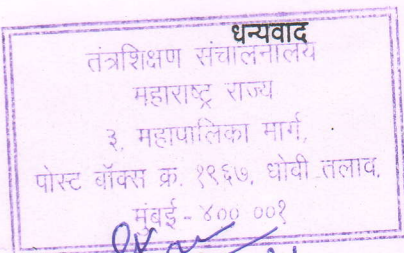 धन्यवाद
तंत्रशिक्षण संचालनालय
महाराष्ट्र राज्य
३, महापालिका मार्ग,
पोस्ट बॉक्स क्र. १९६७, धोबी तलाव,
मुंबई - ४०० ००१